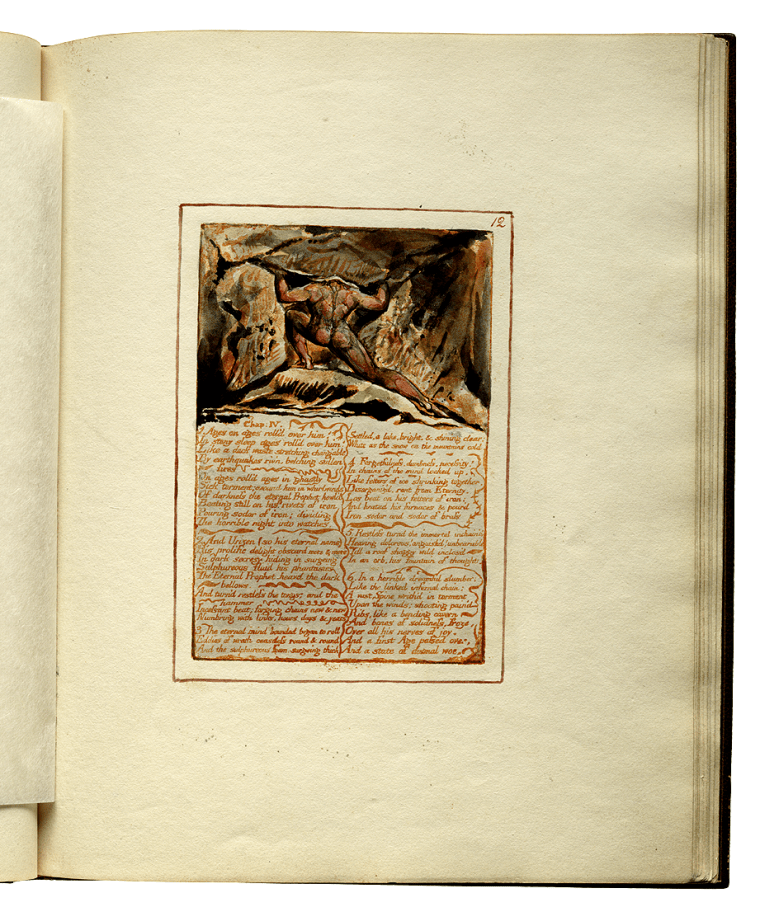 12
Chap: IV.
1. Ages on ages roll'd over him,
In stony sleep ages roll'd over him!
Like a dark waste stretching chang'able
By earthquakes riv'n, belching sullen
fires
On ages roll'd ages in ghastly
Sick torment; around him in whirlwinds
Of darkness the eternal Prophet howl'd
Beating still on his rivets of iron
Pouring sodor of iron; dividing
The horrible night into watches.
2. And Urizen (so his eternal name)
His prolific delight obscurd more & more
In dark secresy hiding in surgeing
Sulphureous fluid his phantasies.
The Eternal Prophet heavd the dark
bellows,
And turnd restless the tongs; and the
hammer
Incessant beat; forging chains new & new
Numb'ring with links. hours, days & years
3. The eternal mind bounded began to roll
Eddies of wrath ceaseless round & round,
And the sulphureous foam surgeing thick
Settled, a lake, bright, & shining clear:
White as the snow on the mountains cold.
4. Forgetfulness, dumbness, necessity!
In chains of the mind locked up,
Like fetters of ice shrinking together
Disorganiz'd, rent from Eternity.
Los beat on his fetters of iron;
And heated his furnaces & pour'd
Iron sodor and sodor of brass
5. Restless turnd the immortal inchain'd
Heaving dolorous! anguish'd! unbearable
Till a roof shaggy wild inclos'd
In an orb, his fountain of thought.
6. In a horrible dreamful slumber;
Like the linked infernal chain;
A vast Spine writh'd in torment
Upon the winds; shooting pain'd
Ribs, like a bending cavern
And bones of solidness, froze
Over all his nerves of joy.
And a first Age passed over,
And a state of dismal woe.